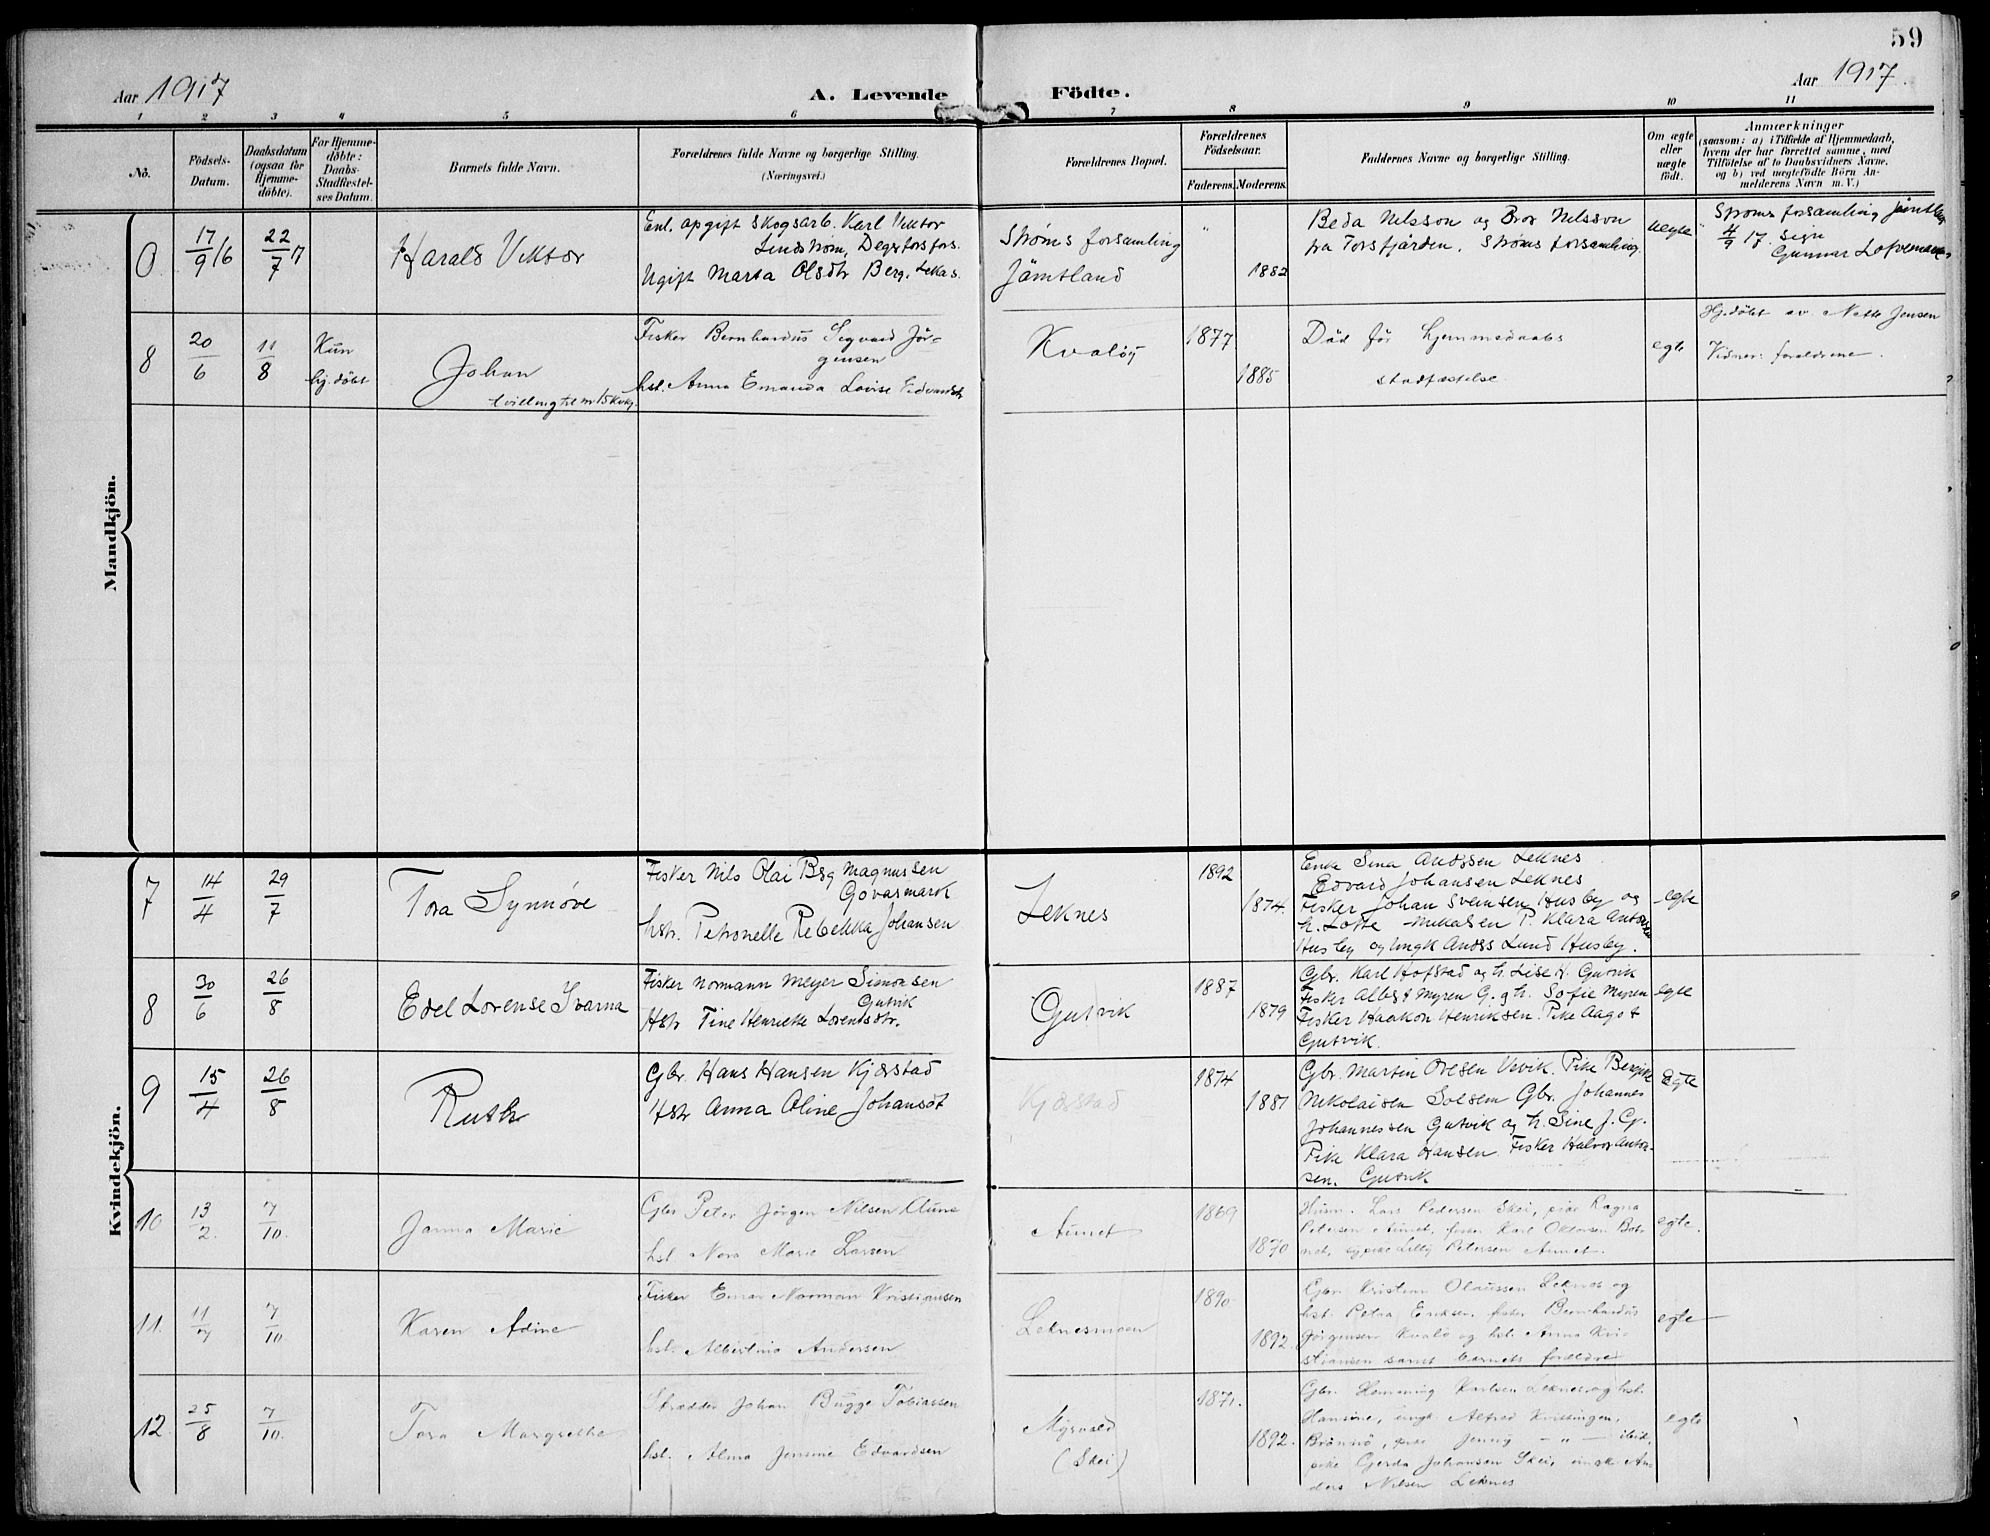 59
Aar 1917
A. Levende
Födte.
Aar 1917.
1 2 3 4 5 6 7 8 9 10 11
No.
Födsels-
Datum.
Daabsdatum
(ogsaa for
Hjemme-
döbte).
For Hjemme-
döbte:
Daabs-
Stadfæstel-
ses Datum.
Barnets fulde Navn.
Forældrenes fulde Navne og borgerlige Stilling.
(Næringsvei.)
Forældrenes Bopæl.
Forældrenes
Födselsaar.
Faderens. Moderens.
Faddernes Navne og borgerlige Stilling.
Om ægte
eller
uægte
födt.
Anmærkninger
(saasom: a) i Tilfælde af Hjemmedaab,
hvem der har forrettet samme, med
Tilföielse af to Daabsvidners Navne,
og b) ved uægtefödte Börn An-
melderens Navn m. V.)
Mandkjön.
0
17/9 16
22/7 17
Harald Viktor
Enl. opgift skogsarb. Karl Viktor
Lindström, Degerfors fors.
Ugift Marta Olsdtr Berg, Lekas.
Ströms forsamling
Jämtland
"
1882
Beda Nilsson og Bror Nilsson
fra Torsfjärden, Ströms forsamling.
uegte
Ströms forsamling Jämtland
4/9 17. sign
Gunnar
8
20/6
11/8
Kun
hj.döbt
Johan
tvilling til nr 15 kvkj.
Fisker Bernhardus Sigvard Jör-
gensen
hst. Anna Emanda Lovise Edvardsdtr
Kvalöy
1877
1885
Död för hjemmedaabs
stadfæstelse
egte
Hj.döbt av Nette Jensen
Vidner: forældrene.
Kvindekjön.
7
14/4
29/7
Tora Synnöve
Fisker Nils Olai Berg Magnussen
Govasmark
hstr. Petronelle Rebekka Johansen
Leknes
1892
1874.
Enke Sina Anderssen Leknes
Edvard Johansen Leknes
Fisker Johan Svensen Husby og
h. Lotte Mikalsen P. Klara Antonsen
Husby og Ungk Anders Lund Husby.
egte
8
30/6
26/8
Edel Lorense Ivarna
Fisker Normann Meyer Simonsen
Gutvik
Hstr Tine Henriette Lorentsdtr.
Gutvik
1887
1879
Gbr. Karl Hofstad og h. Lise H. Gutvik
Fisker Albert Myren G. og h. Sofie Myren
Fisker Haakon Henriksen. Pike Aagot
Gutvik.
egte
9
15/4
26/8
Ruth
Gbr. Hans Hansen Kjærstad
Hstr Anna Oline Johansdt
Kjærstad
1874
1881
Gbr. Martin Olesen Urvik. Pike Bergitte
Nikolaisen Solsem Gbr. Johannes
Johannessen Gutvik og h. Sine J. G.
Pike Klara Hansen. Fisker Halvor Anton-
sen. Gutvik
Egte
10
13/2.
7/10.
Janna Marie
Gbr Peter Jörgen Nilsen Aune
hst. Nora Marie Larsen
Aunet
1869
1870
Husm. Lars Pedersen Skei, pike Ragna
Petersen Aunet, fisker Karl Oktavsen Bot-
net, og pike Lilly Petersen Aunet.
egte.
11.
11/7
7/10
Karen Adine
Fisker Einar Norman Kristiansen
hst. Albertine Andersen
Leknesmoen
1890
1892.
Gbr. Kristian Olaussen Leknes og
hst. Petra Eriksen, fisker Bernhardus
Jörgensen Kvalö og hst. Anna Kri-
stiansen samt barnets forældre
egte
12.
25/8
7/10.
Tora Margrethe
Skrædder Johan Bugge Tobiassen
hst. Alma Jensine Edvardsen
Myrvold
(Skei)
1871.
1892.
Gbr. Hemming Karlsen Leknes, og hst.
Hansine, ungk. Alfred Kvistingen,
Brönnö, pike Jenny - " - ibid,
pike Gerda Johansen Skei, ungk. An-
ders Nilsen Leknes
egte